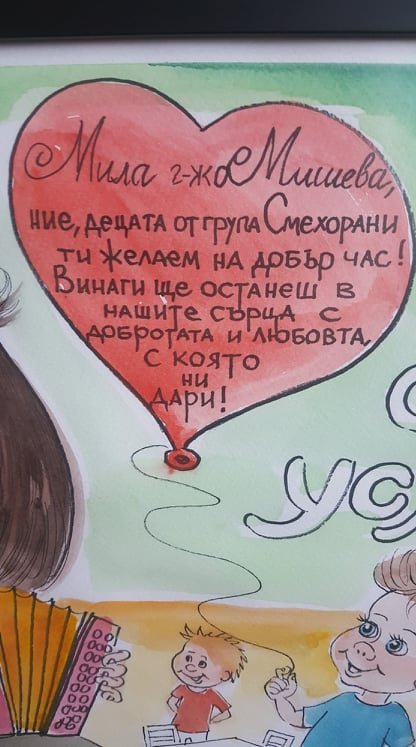 Мила г-жо Мишева,
ние, децата от група Смехорани
ти желаем на добър час!
Винаги ще останеш в
нашите сърца с
добротата и любовта,
с която
ни
дари!
ус